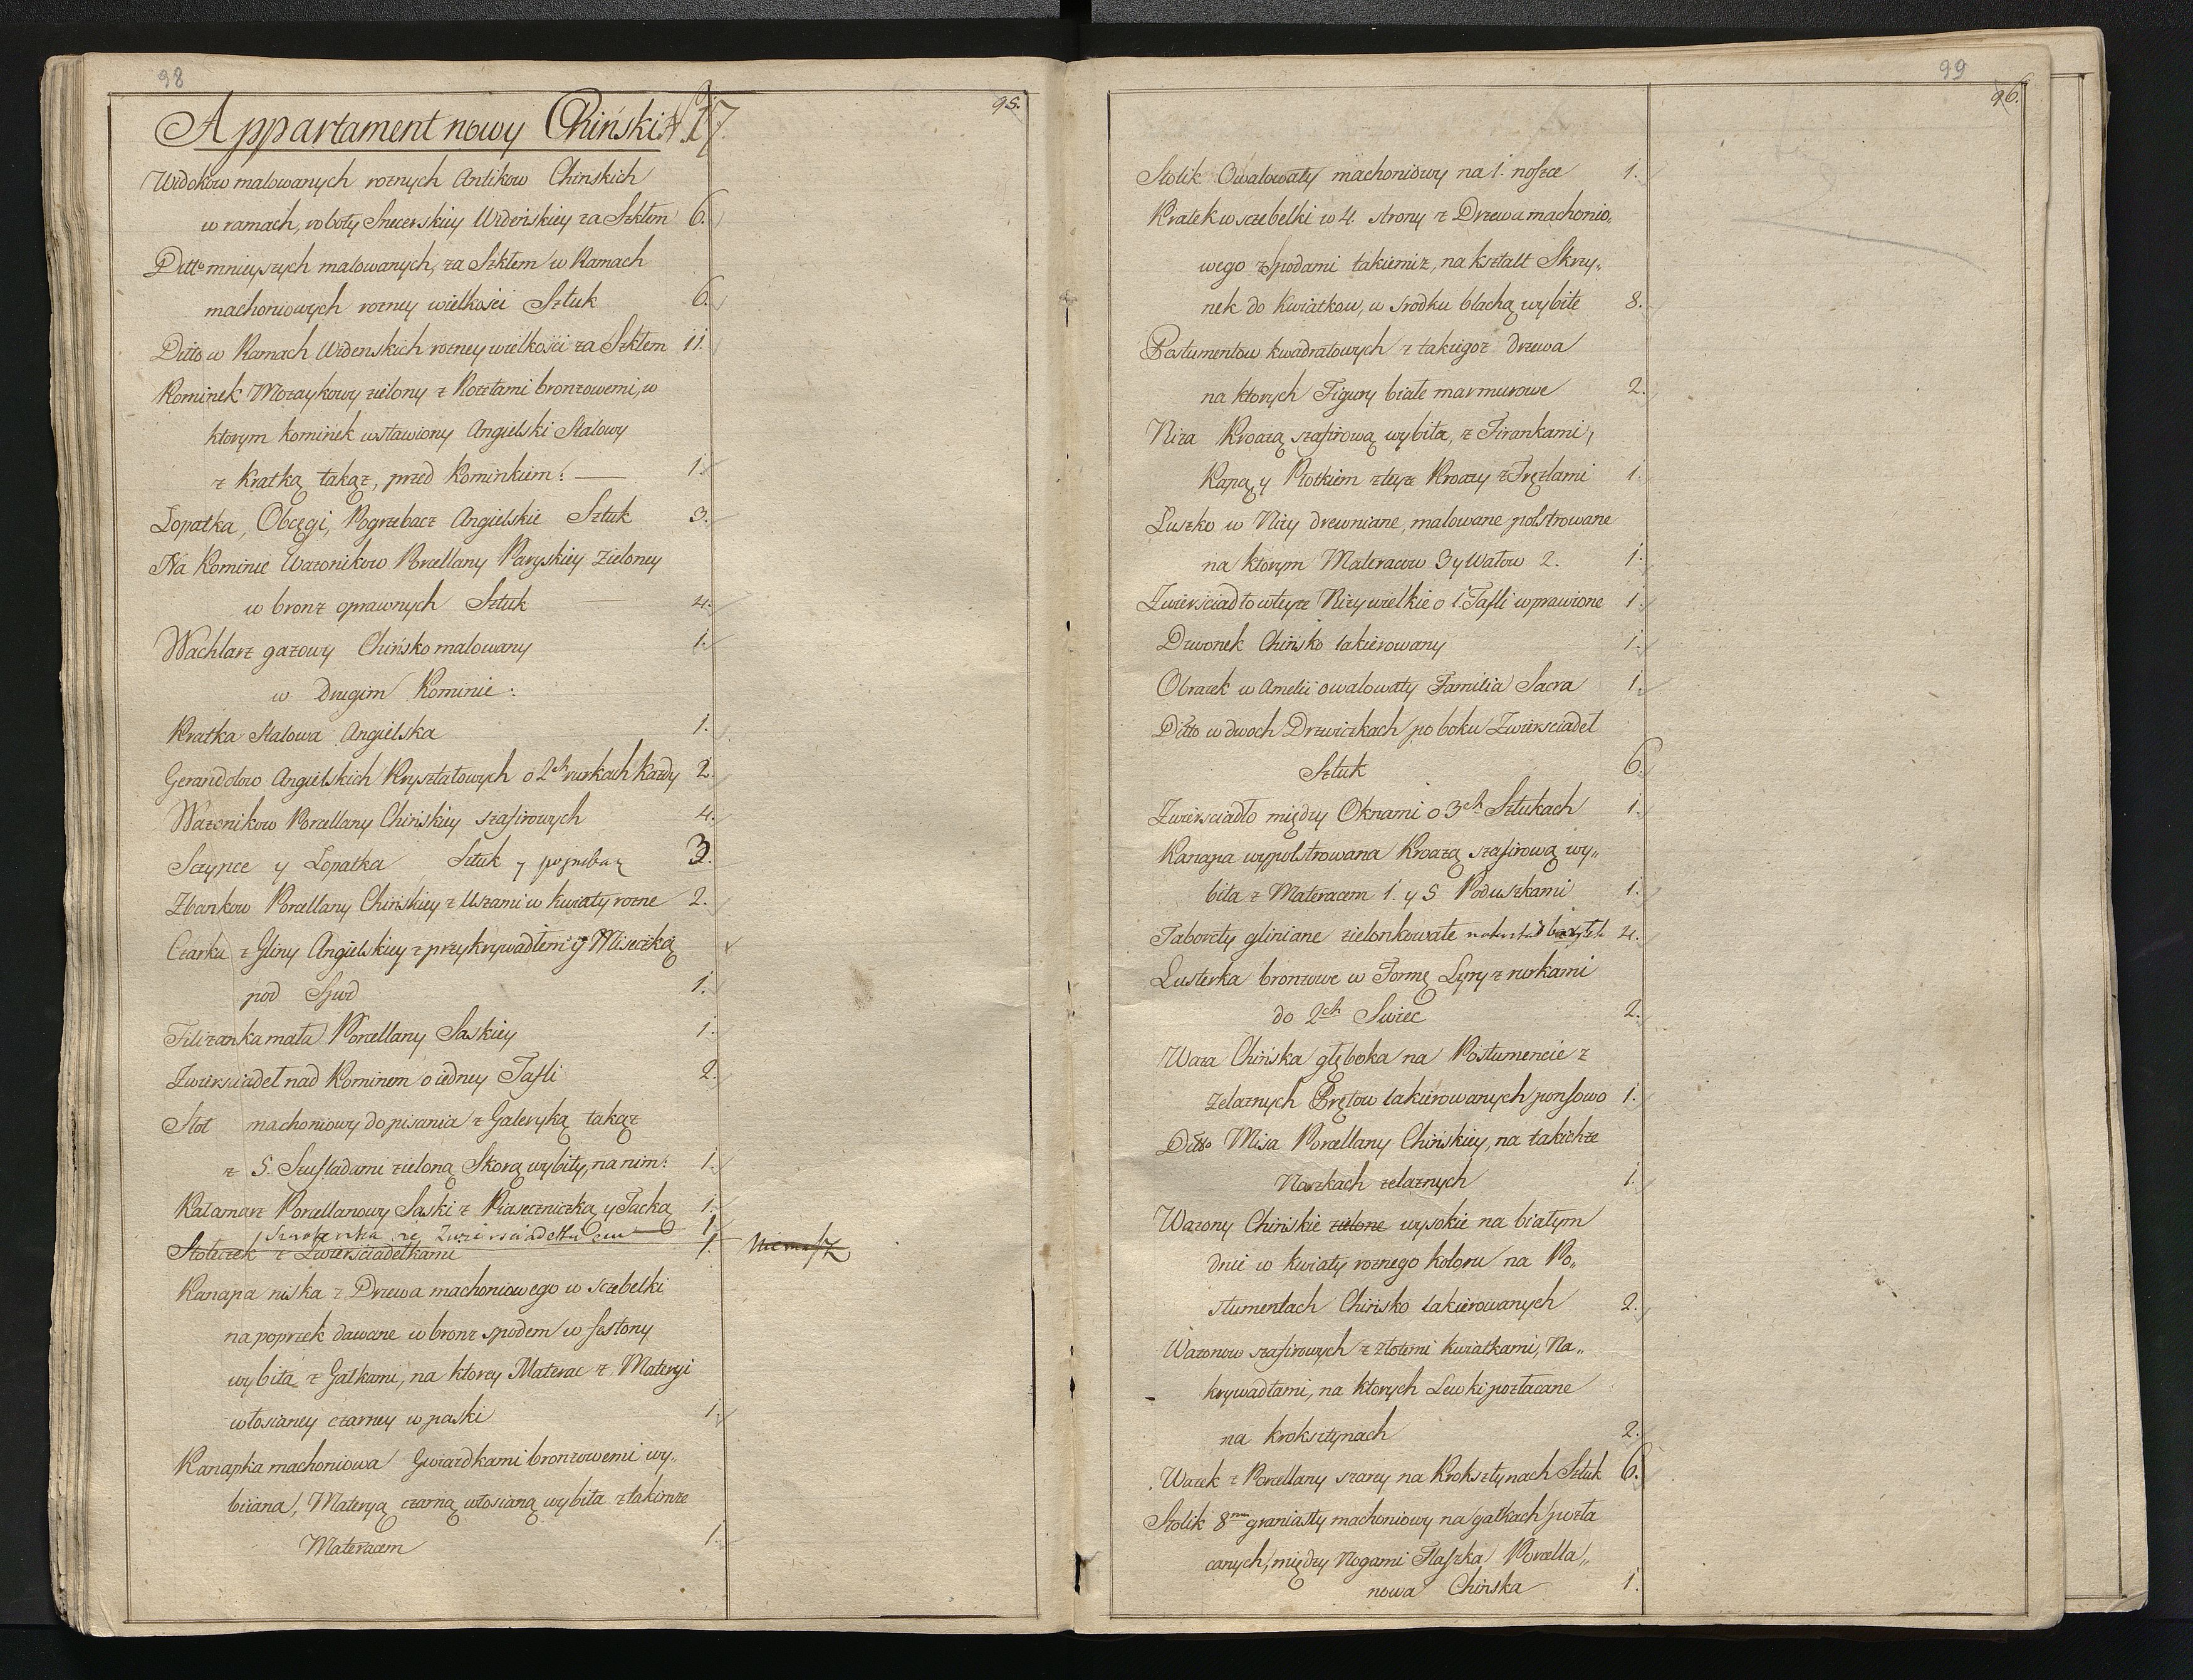 98
95.
Appartament nowy Chiński N. 17.
Widokow malowanych rożnych Antikow Chinskich
w ramach, roboty Snecerskiey Wideńskiey za Szkłem 6.
Ditto mnieyszych malowanych, za Szkłem w Ramach
machoniowych rożney wielkości Sztuk 6.
Ditto w Ramach Widenskich rożney wielkości za Szkłem 11.
Kominek Mozaykowy zielony z Rożtami bronzowemi, w
ktorym kominek wstawiony Angielski Stalowy
z Kratką takąż, przed Kominkiem: 1.
Lopatka, Obcęgi, Pogrzebacz Angielskie Sztuk 3.
Na Kominie Wazonikow Porcellany Paryskiey Zieloney
w bronz oprawnych Sztuk 4.
Wachlarz gazowy Chińsko malowany 1.
w Drugim Kominie:
Kratka Stalowa Angielska 1.
Gerandolow Angielskich Kryształowych o 2ch rurkach każdy 2.
Wazonikow Porcellany Chińskiey szafirowych 4.
Szczypce y Lopatka Sztuk y pogrzebacz 3.
Zbankow Porcellany Chińskiey z Uszami w kwiaty rożne 2.
Czarka z Gliny Angielskiey z przykrywadłem y Miseczką
pod Spod 1.
Filiżanka mała Porcellany Saskiey 1.
Zwierściadeł nad Kominem o iedney Tafli 2.
Stoł machoniowy do pisania z Galeryką takąż
z 5. Szufladami zieloną Skorą wybity, na nim: 1.
Kałamarz Porcellanowy Saski z Piaseczniczką y Tacką 1.
ze Zwierściadełkiem 1.
Stołeczek z Zwierściadełkami 1. Nie masz
Kanapa niska z Drzewa machoniowego w sczebelki
na poprzek dawane w bronz spodem w festony
wybita z Gałkami, na ktorey Materac z Materyi
włosianey czarney w paski 1.
Kanapka machoniowa Gwiazdkami bronzowemi wy„
biiana, Materyą czarną włosianą wybita z takimże
Materacem 1.
99
96.
Stolik Owalowaty machoniowy na 1. noszce 1.
Kratek w sczebelki w 4. strony z Drzewa machonio„
wego z Spodami takiemiż, na kształt Skrzy„
nek do Kwiatkow, w srodku blachą wybite 8.
Postumentow kwadratowych z takiegoż drzewa
na ktorych Figury białe marmurowe 2.
Niża Kroazą szafirową wybita, z Firankami,
Kapą y Płotkiem z teyże Kroazy z Fręzlami 1.
Luszko w Niży drewniane, malowane polstrowane
na ktorym Materacow 3 y Wałow 2. 1.
Zwierściadło w teyże Niży wielkie o 1. Tafli wprawione 1.
Dzwonek Chińsko lakierowany 1.
Obrazek w Amelii owalowaty Familia Sacra 1.
Ditto w dwoch Drzwiczkach po boku Zwierściadeł
Sztuk 6.
Zwierściadło między Oknami o 3ch Sztukach 1.
Kanapa wypolstrowana Kroazą szafirową wy„
bita z Materacem 1. y 5 Poduszkami 1.
Taborety gliniane zielonkowate na kształt baryłek 4.
Lusterka bronzowe w Formę Lyry z rurkami
do 2ch Swiec 2.
Waza Chińska głęboka na Postumencie z
żelaznych Prętow lakierowanych ponsowo 1.
Ditto Misa Porcellany Chińskiey, na takichże
Noszkach żelaznych 1.
Wazony Chińskie zielone wysokie na białym
dnie w kwiaty rożnego koloru na Po„
stumentach Chińsko lakierowanych 2.
Wazonow szafirowych z złotemi kwiatkami, Na„
krywadłami, na ktorych Lewki pozłacane
na kroksztynach 2.
Wazek z Porcellany szarey na Kroksztynach Sztuk 6.
Stolik 8mio graniasty machoniowy na gałkach pozła
canych, między Nogami Flaszka Porcella„
nowa Chińska 1.